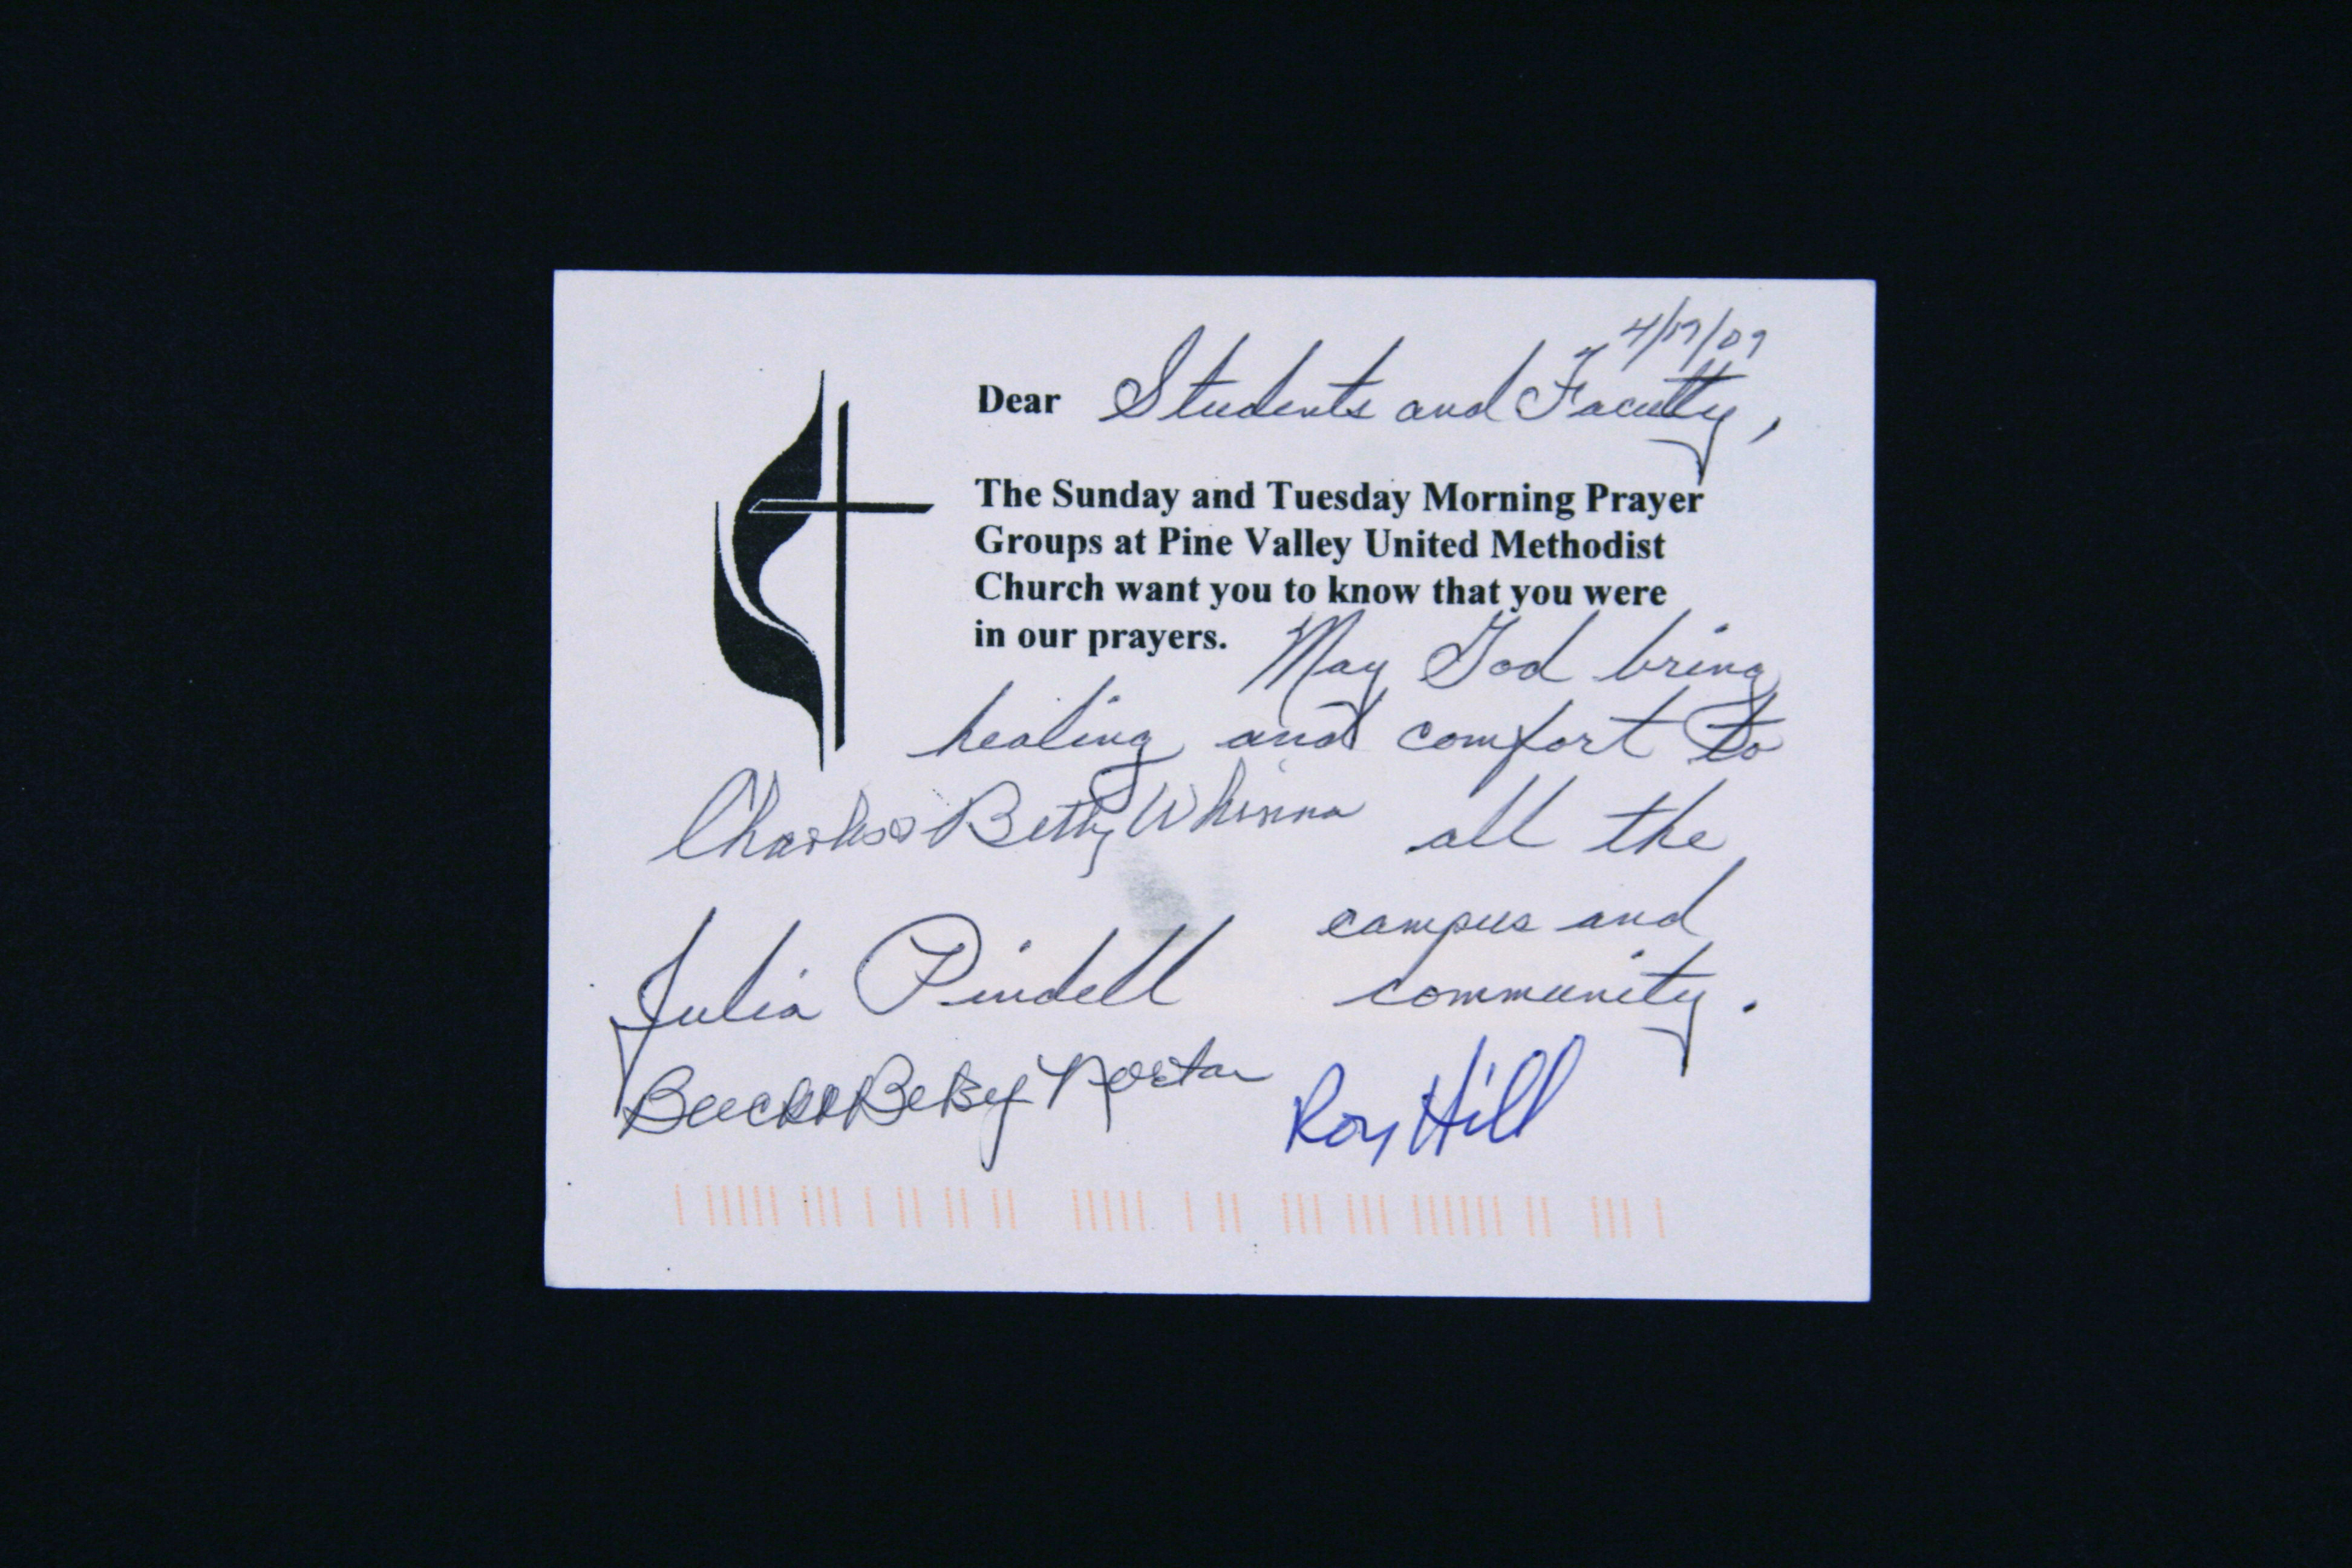 4/17/07
Dear Students and Faculty,
The Sunday and Tuesday Morning Prayer
Groups at Pine Valley United Methodist
Church want you to know that you were
in our prayers. May God bring
healing and comfort to
Charles & Betty Whinna all the
campus and
Julia Pindell community.
Betsy Norton Roy Hill